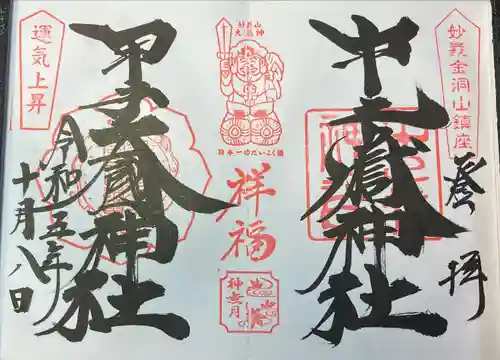 妙義金洞山鎮座
中之嶽神社
登拝
妙義山
日本一のだいこく様
祥福
神無月
運気上昇
甲子大國神社
令和五年
十月八日